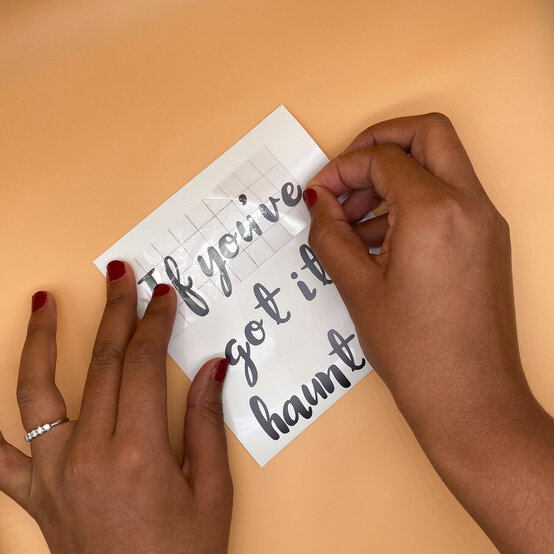 If you've
got it
haunt